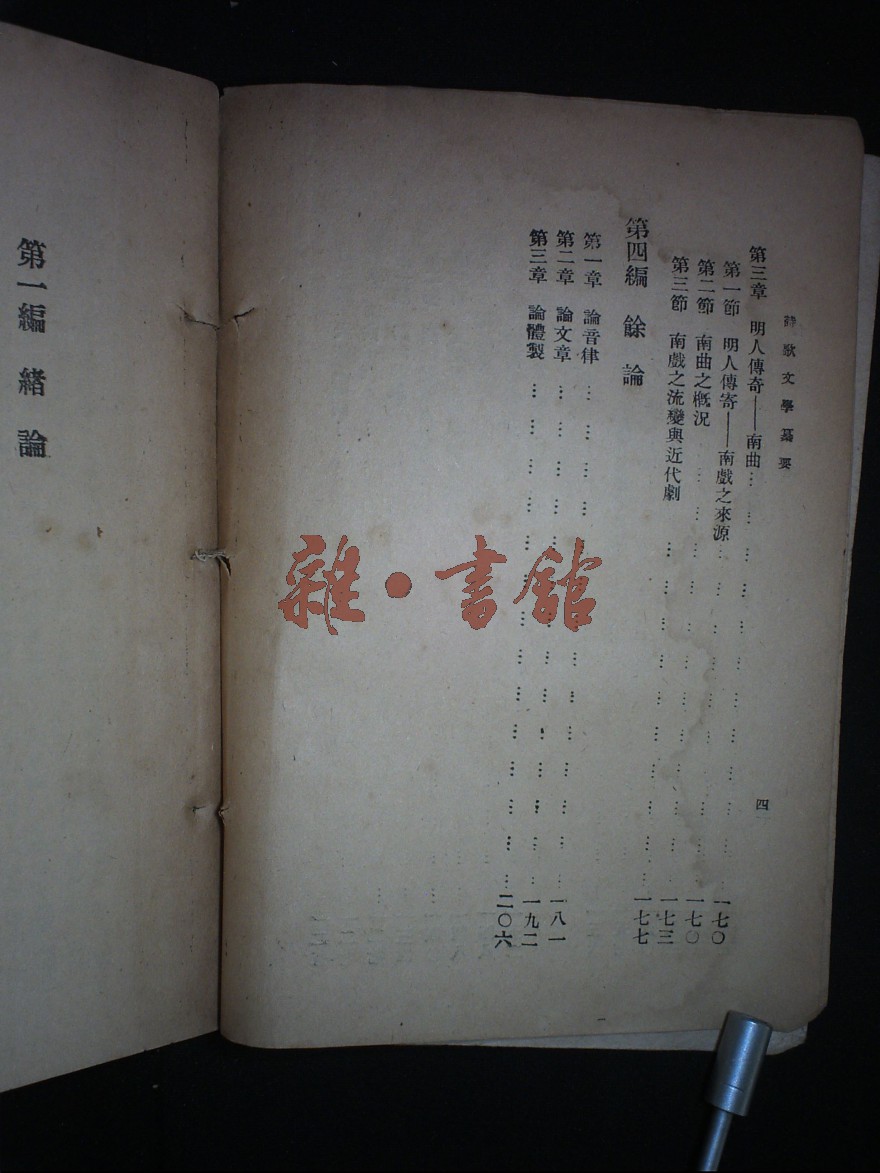 詩歌文學纂要
四
第三章 明人傳奇——南曲………………一七〇
第一節 明人傳寄——南戲之來源………………一七〇
第二節 南曲之概況………………一七三
第三節 南戲之流變與近代劇………………一七七
第四編 餘論
第一章 論音律………………一八一
第二章 論文章………………一九二
第三章 論體製………………二〇六
第一編 緒論
雜·書館